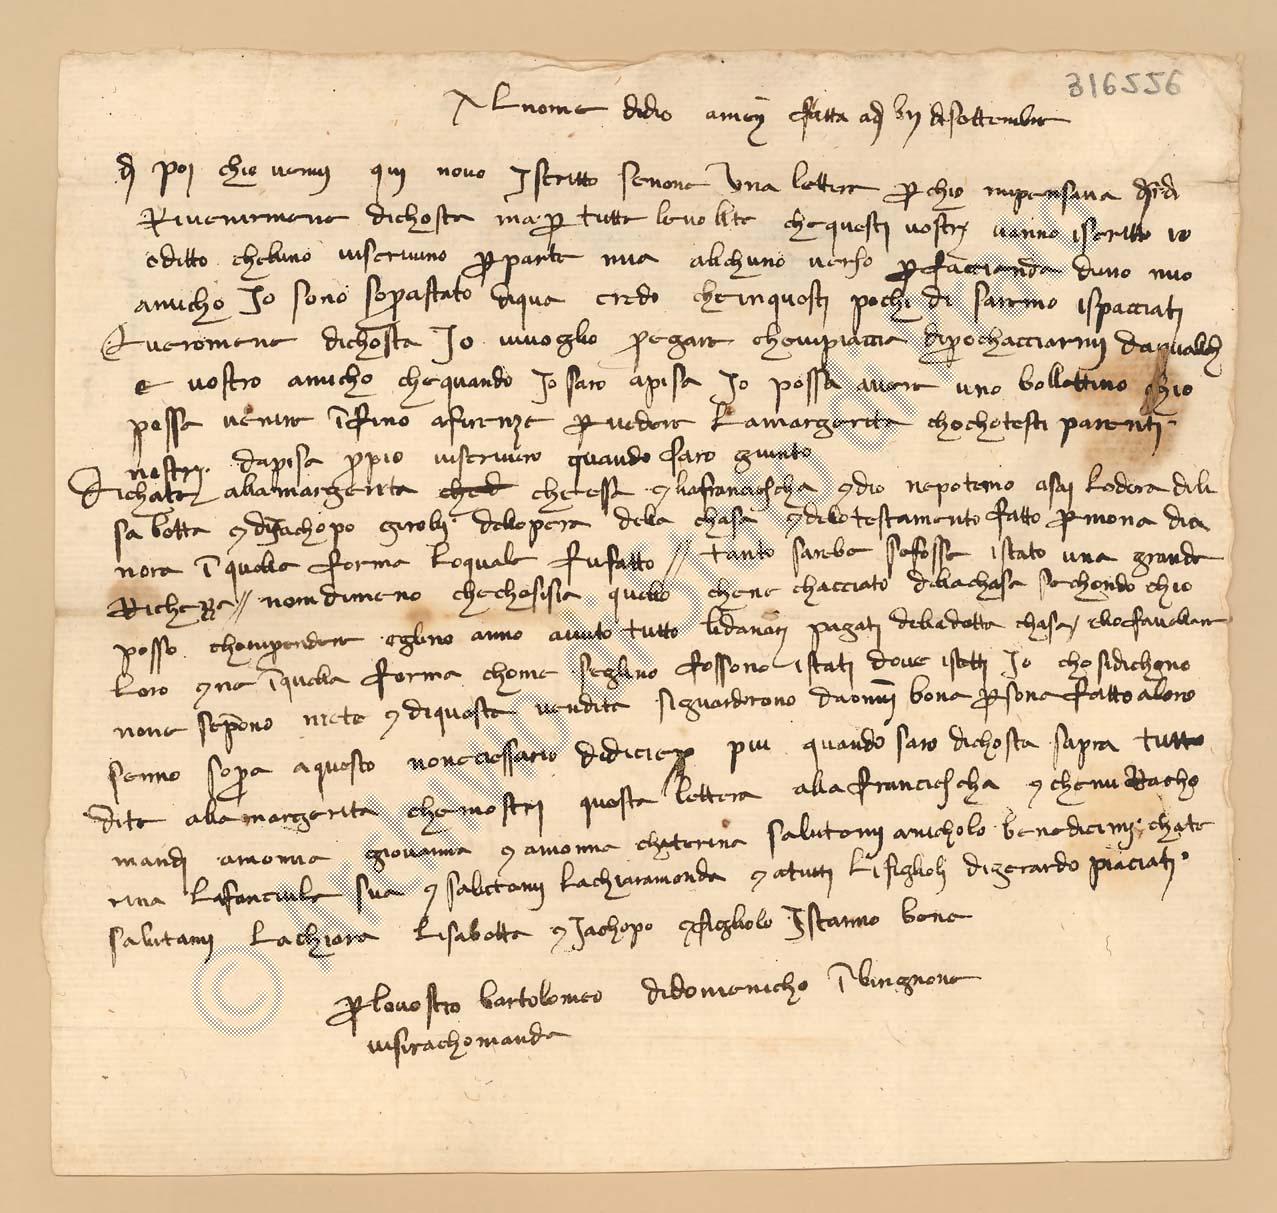 316556
Al nome didio amen fatta adj vij di settembre
di poi chio venni quj nono Iscritto senone una lettera perchio mipensava didi
Rivenirmene dichosta ma per tutte levolte chequesti vostrj vanno iscritto io
o ditto chellino viscrivino perparte mia alchuno verso perfaccienda duno mio
amicho Io sono soprastato diqua credo cheinquesti pochi di saremo ispacciati
Everomene dichosta Io vivoglio pregare chempiaccia diprochacciarmi daqualch
e vostro amicho chequando Io saro apisa Io possa avere uno bollettino chio
possa venire infino afirenze pervedere Lamargerita chochotesti parenti
nostrj dapisa propio viscrivero quando saro giunto
Dichate allamargerita ched cheessa e lafranciescha edio nepotemo asai Lodera dili
sabetta edijachopo girolli dellopera della chasa edelotestamento fatto permona dia
nora inquella forma loquale fufatto // tanto sarebe sefosse istato una grande
Richeza // nondimeno chechesisia quello chene chacciato dellachasa sechondo chio
posso chomprendere eglino anno avuto tutto lidanari pagati delladetta chasa / ello favellare
loro ene inquella forma chome seglino fossono istati dove istetti Io chosidichono
none seppono niete e diquesta vendita siguarderono daonni bona persona fatto aloro
senno sopra aquesto noneciessario didicier piu quando saro dichosta sapra tutto
dite allamargerita chemostri questa lettera alla franciescha e chemi Racho
mandj amonna giovanna e amonna chaterina salutami anicholo benedicimj chate
rina Lafanciulla sua e salutami lachiaramonda e atutti lifiglioli digerardo piaciati
salutami Lachiara Lisabetta e Jachopo efigliolo Istanno bene
per lovostro bartolomeo didomenicho invingnone
visirachomanda
© Archivio di Stato di Prato